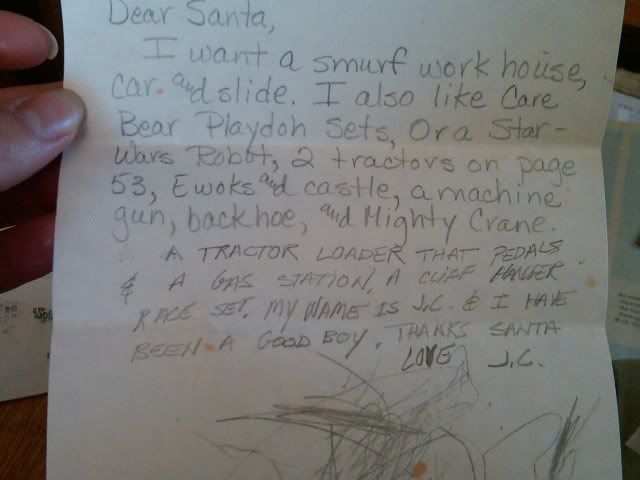 Dear Santa,
I want a smurf work house,
car. and slide. I also like Care
Bear Playdoh Sets, Or a Star-
Wars Robot, 2 tractors on page
53, Ewoks and castle, a machine
gun, backhoe, and Mighty Crane.
A TRACTOR LOADER THAT PEDALS
& A GAS STATION, A CLIFF HANGER
RACE SET. MY NAME IS J.C. & I HAVE
BEEN A GOOD BOY. THANKS SANTA
LOVE J.C.